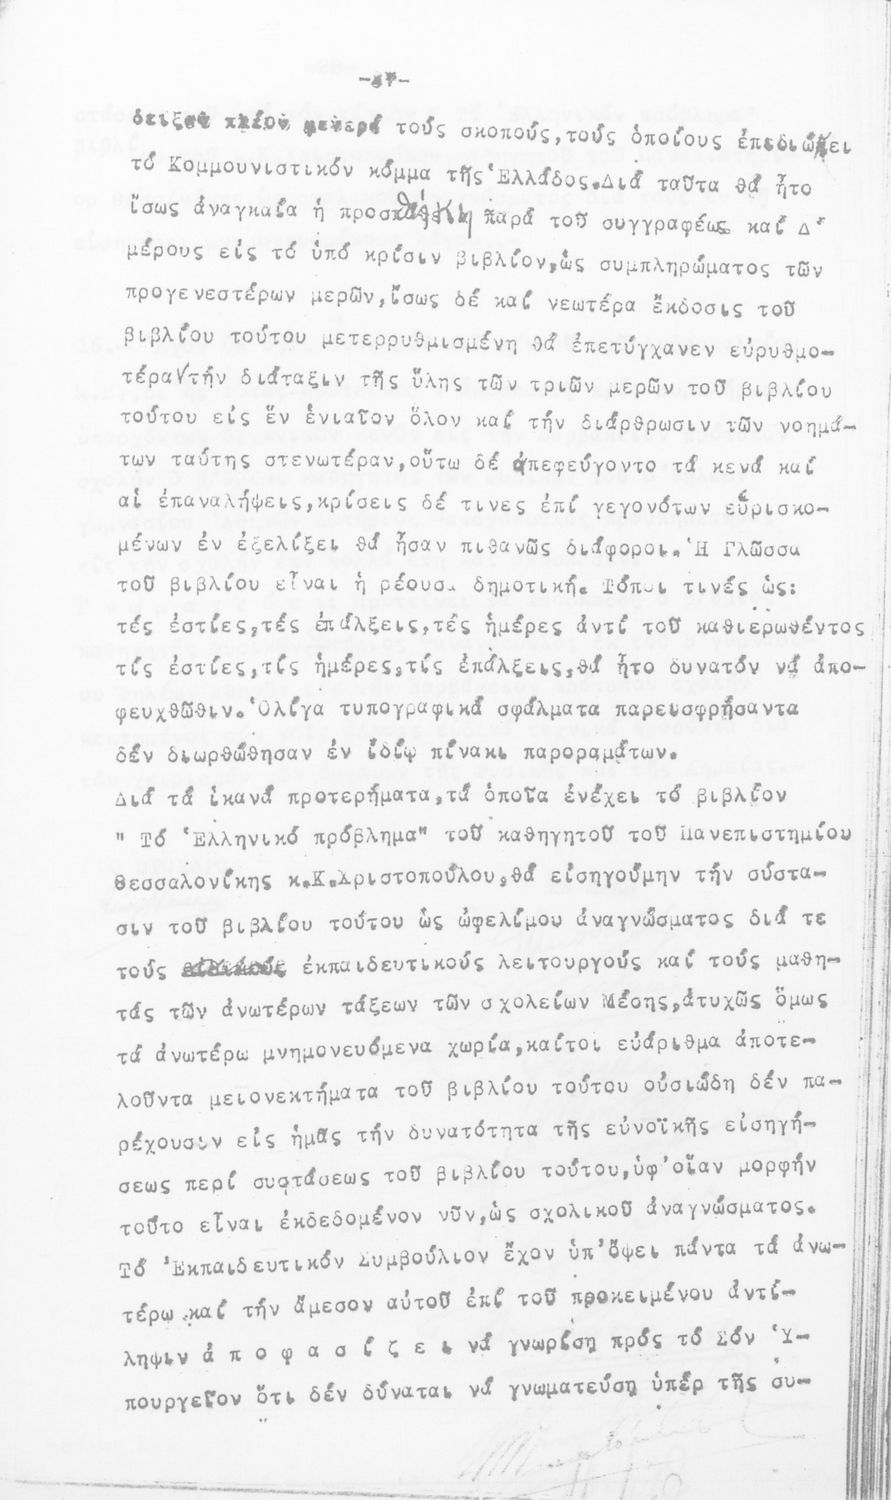 δειξαν πλέον φανερά τούς σκοπούς,τούς ὁποίους ἐπεδιώκει
τό Κομμουνιστικόν κόμμα τῆς Ἑλλάδος.Διά ταῦτα θά ἦτο
ἴσως ἀναγκαία ἡ προσθήκη παρά τοῦ συγγραφέως καί Δ'
μέρους εἰς τό ὑπό κρίσιν βιβλίον,ὡς συμπληρώματος τῶν
προγενεστέρων μερῶν,ἴσως δέ καί νεωτέρα ἔκδοσις τοῦ
βιβλίου τούτου μετερρυθμισμένη θά ἐπετύγχανεν εὐρυθμο-
τέραν τήν διάταξιν τῆς ὕλης τῶν τριῶν μερῶν τοῦ βιβλίου
τούτου εἰς ἕν ἑνιαῖον ὅλον καί τήν διάρθρωσιν τῶν νοημά-
των ταύτης στενωτέραν,οὕτω δέ ἀπεφεύγοντο τά κενά καί
αἱ ἐπαναλήψεις,κρίσεις δέ τινες ἐπί γεγονότων εὑρισκο-
μένων ἐν ἐξελίξει θά ἦσαν πιθανῶς διάφοροι.Ἡ Γλῶσσα
τοῦ βιβλίου εἶναι ἡ ρέουσα δημοτική. Τύποι τινές ὡς:
τές ἑστίες,τές ἐπάλξεις,τές ἡμέρες ἀντί τοῦ καθιερωθέντος
τίς ἑστίες,τίς ἡμέρες,τίς ἐπάλξεις,θά ἦτο δυνατόν νά ἀπο-
φευχθῶθιν.Ὀλίγα τυπογραφικά σφάλματα παρεισφρήσαντα
δέν διωρθώθησαν ἐν ἰδίῳ πίνακι παροραμάτων.
Διά τά ἱκανά προτερήματα,τά ὁποῖα ἐνέχει τό βιβλίον
" Τό Ἑλληνικό πρόβλημα" τοῦ καθηγητοῦ τοῦ Πανεπιστημίου
Θεσσαλονίκης κ.Κ.Χριστοπούλου,θά εἰσηγούμην τήν σύστα-
σιν τοῦ βιβλίου τούτου ὡς ὠφελίμου ἀναγνώσματος διά τε
τούς ἐκπαιδευτικούς λειτουργούς καί τούς μαθη-
τάς τῶν ἀνωτέρων τάξεων τῶν σχολείων Μέσης,ἀτυχῶς ὅμως
τά ἀνωτέρω μνημονευόμενα χωρία,καίτοι εὐάριθμα ἀποτε-
λοῦντα μειονεκτήματα τοῦ βιβλίου τούτου οὐσιώδη δέν πα-
ρέχουσιν εἰς ἡμᾶς τήν δυνατότητα τῆς εὐνοϊκῆς εἰσηγή-
σεως περί συστάσεως τοῦ βιβλίου τούτου,ὑφ'οἵαν μορφήν
τοῦτο εἶναι ἐκδεδομένον νῦν,ὡς σχολικοῦ ἀναγνώσματος.
Τό Ἐκπαιδευτικόν Συμβούλιον ἔχον ὑπ'ὄψει πάντα τά ἀνω-
τέρω καί τήν ἄμεσον αὐτοῦ ἐπί τοῦ προκειμένου ἀντί-
ληψιν ἀ π ο φ α σ ί ζ ε ι νά γνωρίσῃ πρός τό Σόν Ὑ-
πουργεῖον ὅτι δέν δύναται νά γνωματεύσῃ ὑπέρ τῆς συ-